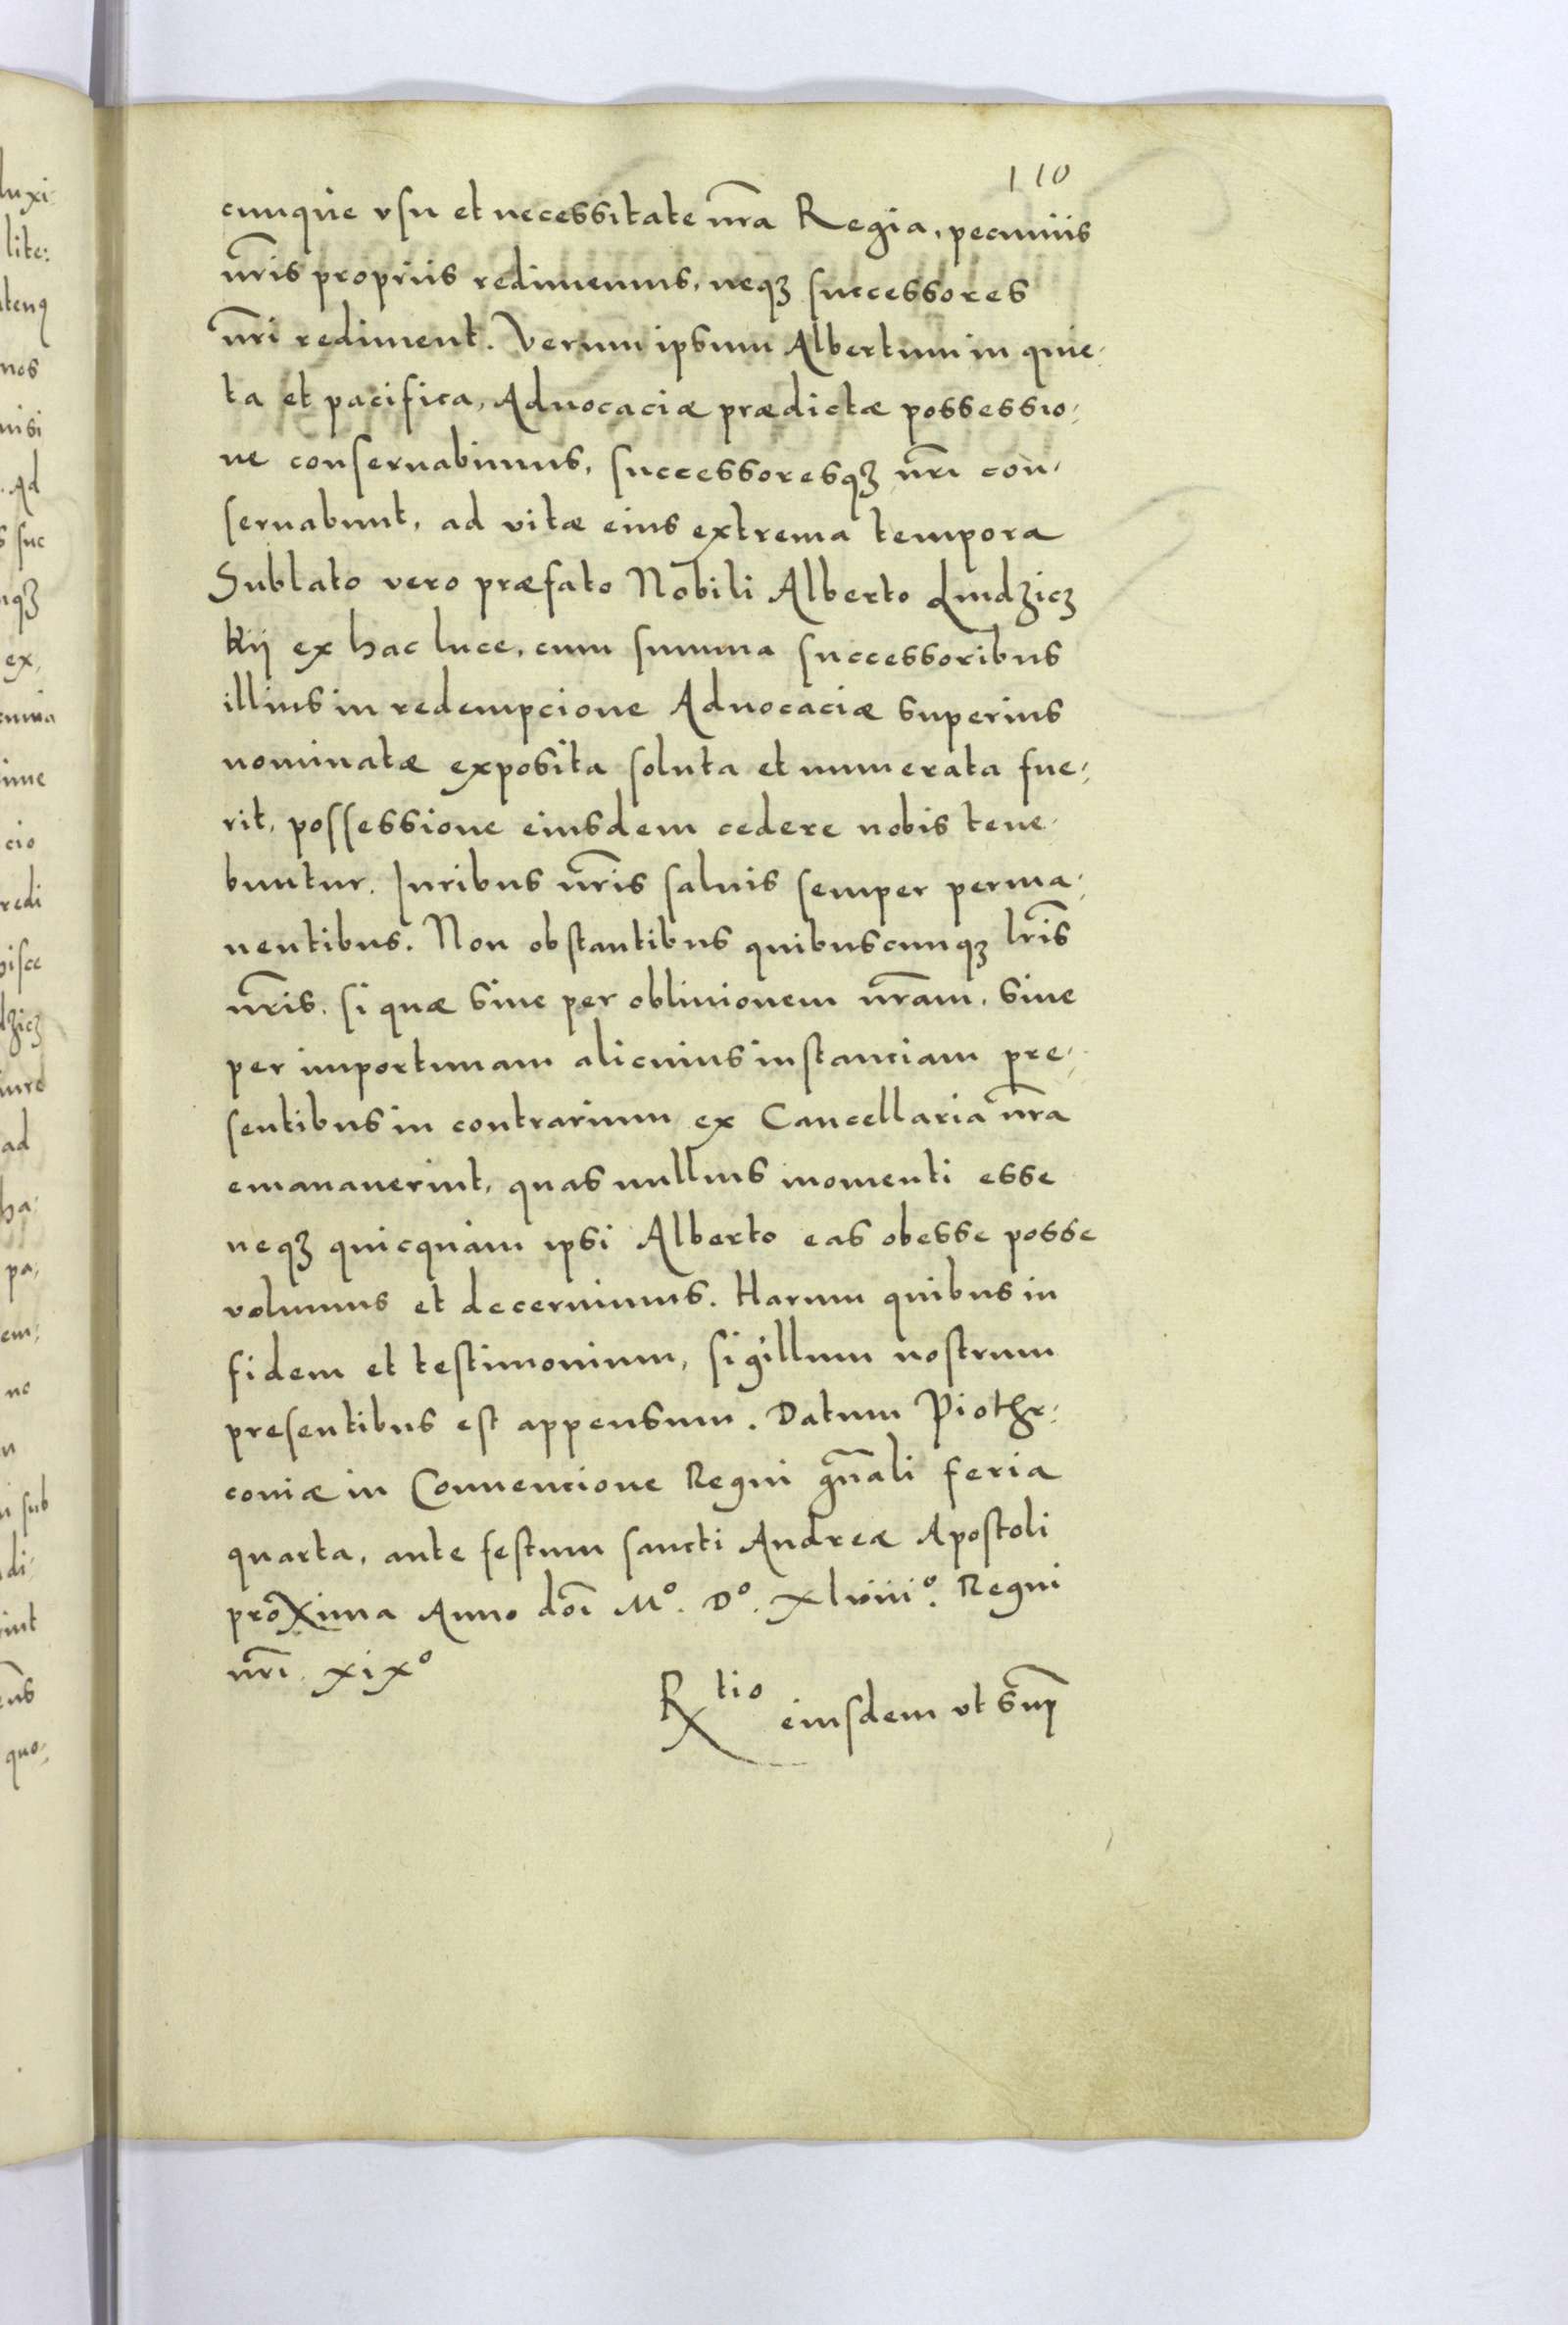 110
cunque vsu et necessitate nr̃a Regia, pecuniis
nr̃is propriis redimemus, neqꝫ successores
nr̃i rediment. Verum ipsum Albertum in quie-
ta et pacifica, Aduocaciæ prædictæ possessio-
ne conseruabimus, successoresqꝫ nr̃i con-
seruabunt, ad vitæ eius extrema tempora
Sublato vero præfato Nobili Alberto Ludzicz
kij ex hac luce, cum summa successoribus
illius in redempcione Aduocaciæ superius
nominatæ exposita soluta et numerata fue-
rit, possessione eiusdem cedere nobis tene-
buntur. Iuribus nr̃is saluis semper perma-
nentibus. Non obstantibus quibuscunqꝫ lr̃is
nr̃is, si quæ siue per obliuionem nr̃am, siue
per importunam alicuius instanciam pre-
sentibus in contrarium ex Cancellaria nr̃a
emanauerint, quas nullius momenti esse
neqꝫ quicquam ipsi Alberto eas obesse posse
volumus et decernimus. Harum quibus in
fidem et testimonium, sigillum nostrum
presentibus est appensum. Datum Piothr-
coniæ in Conuencione Regni gñali feria
quarta, ante festum sancti Andreæ Apostoli
proxima Anno dõi Mº. Dº. xlviiiº. Regni
nr̃i. xixº
Rtio eiusdem vt sup̃